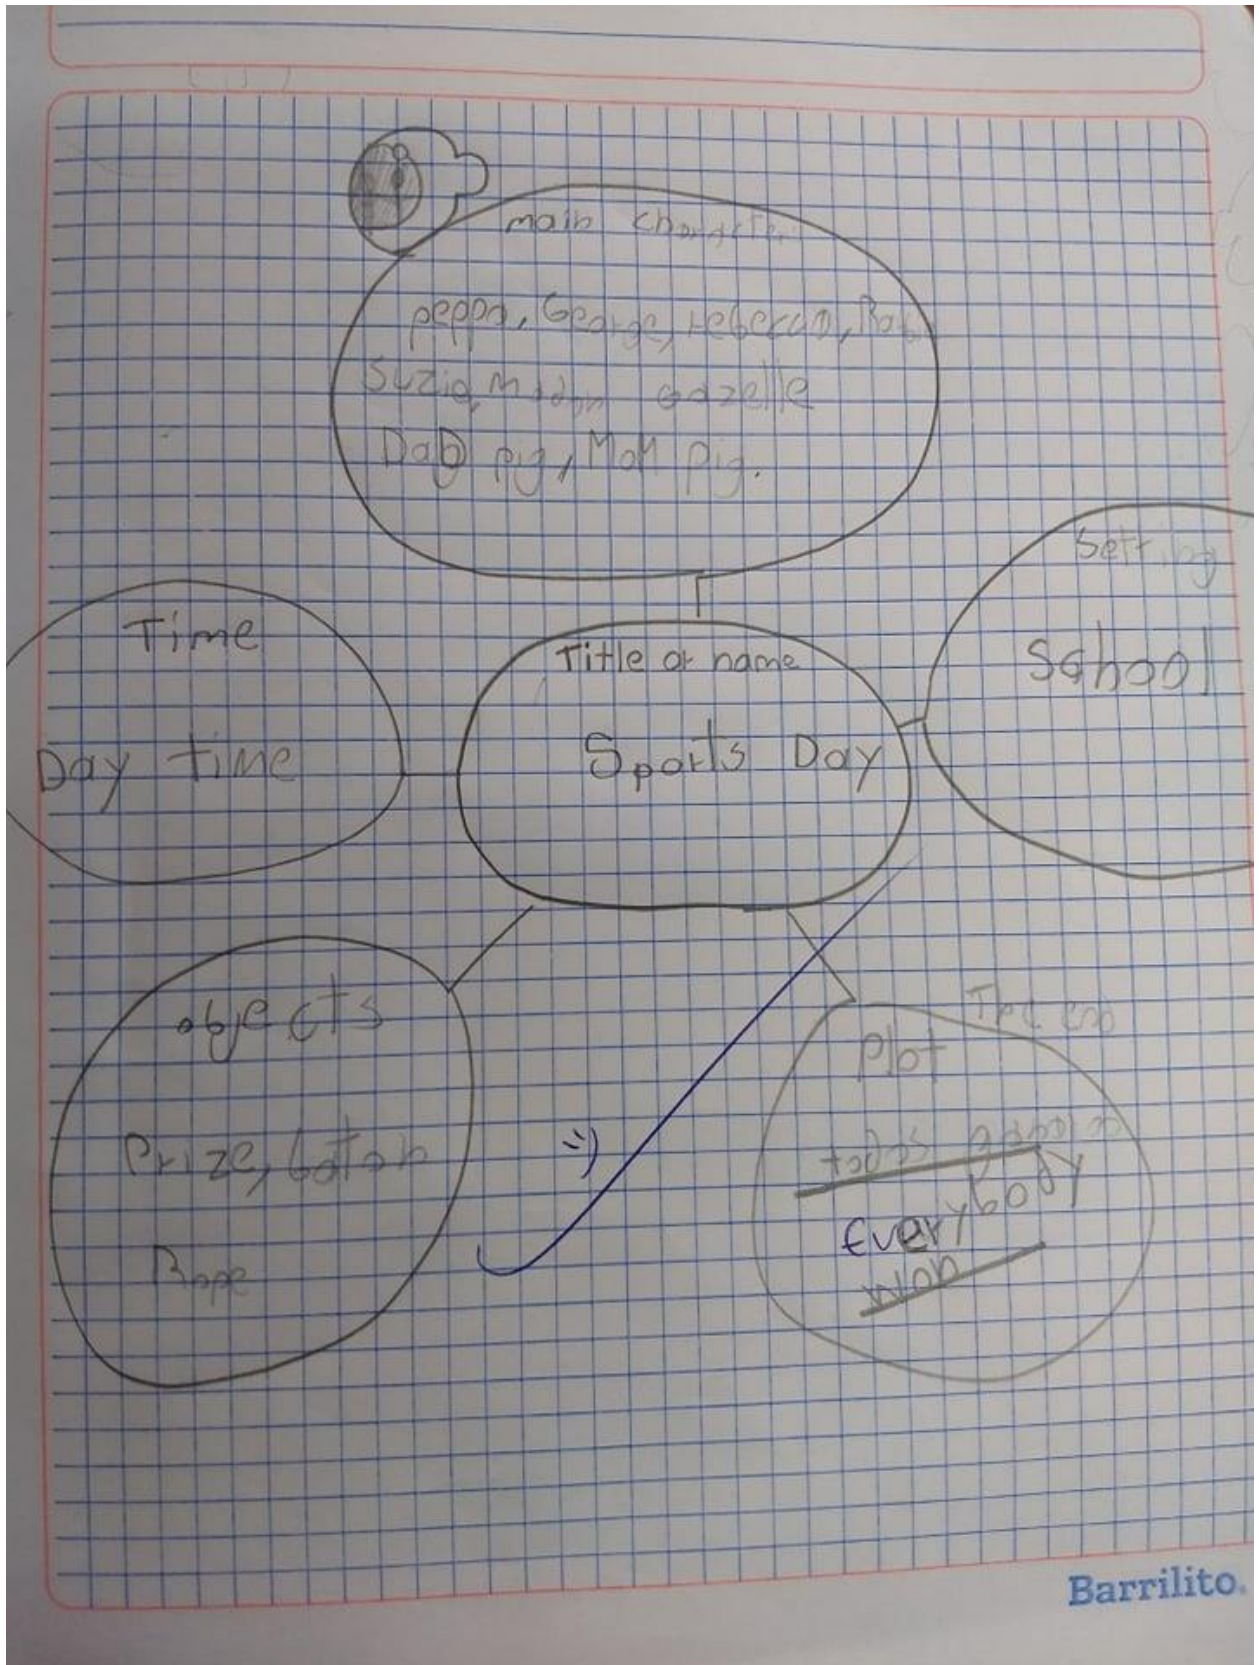 main character
peppa, George, rebecca,
Suzie, Madam Gazelle
DaD pig, MoM pig.
Setting
School
Time
Day time
Title or name
Sports Day
objects
Prize, baton
Rope
The end
Plot
Everybody
won
:)
Barrilito.